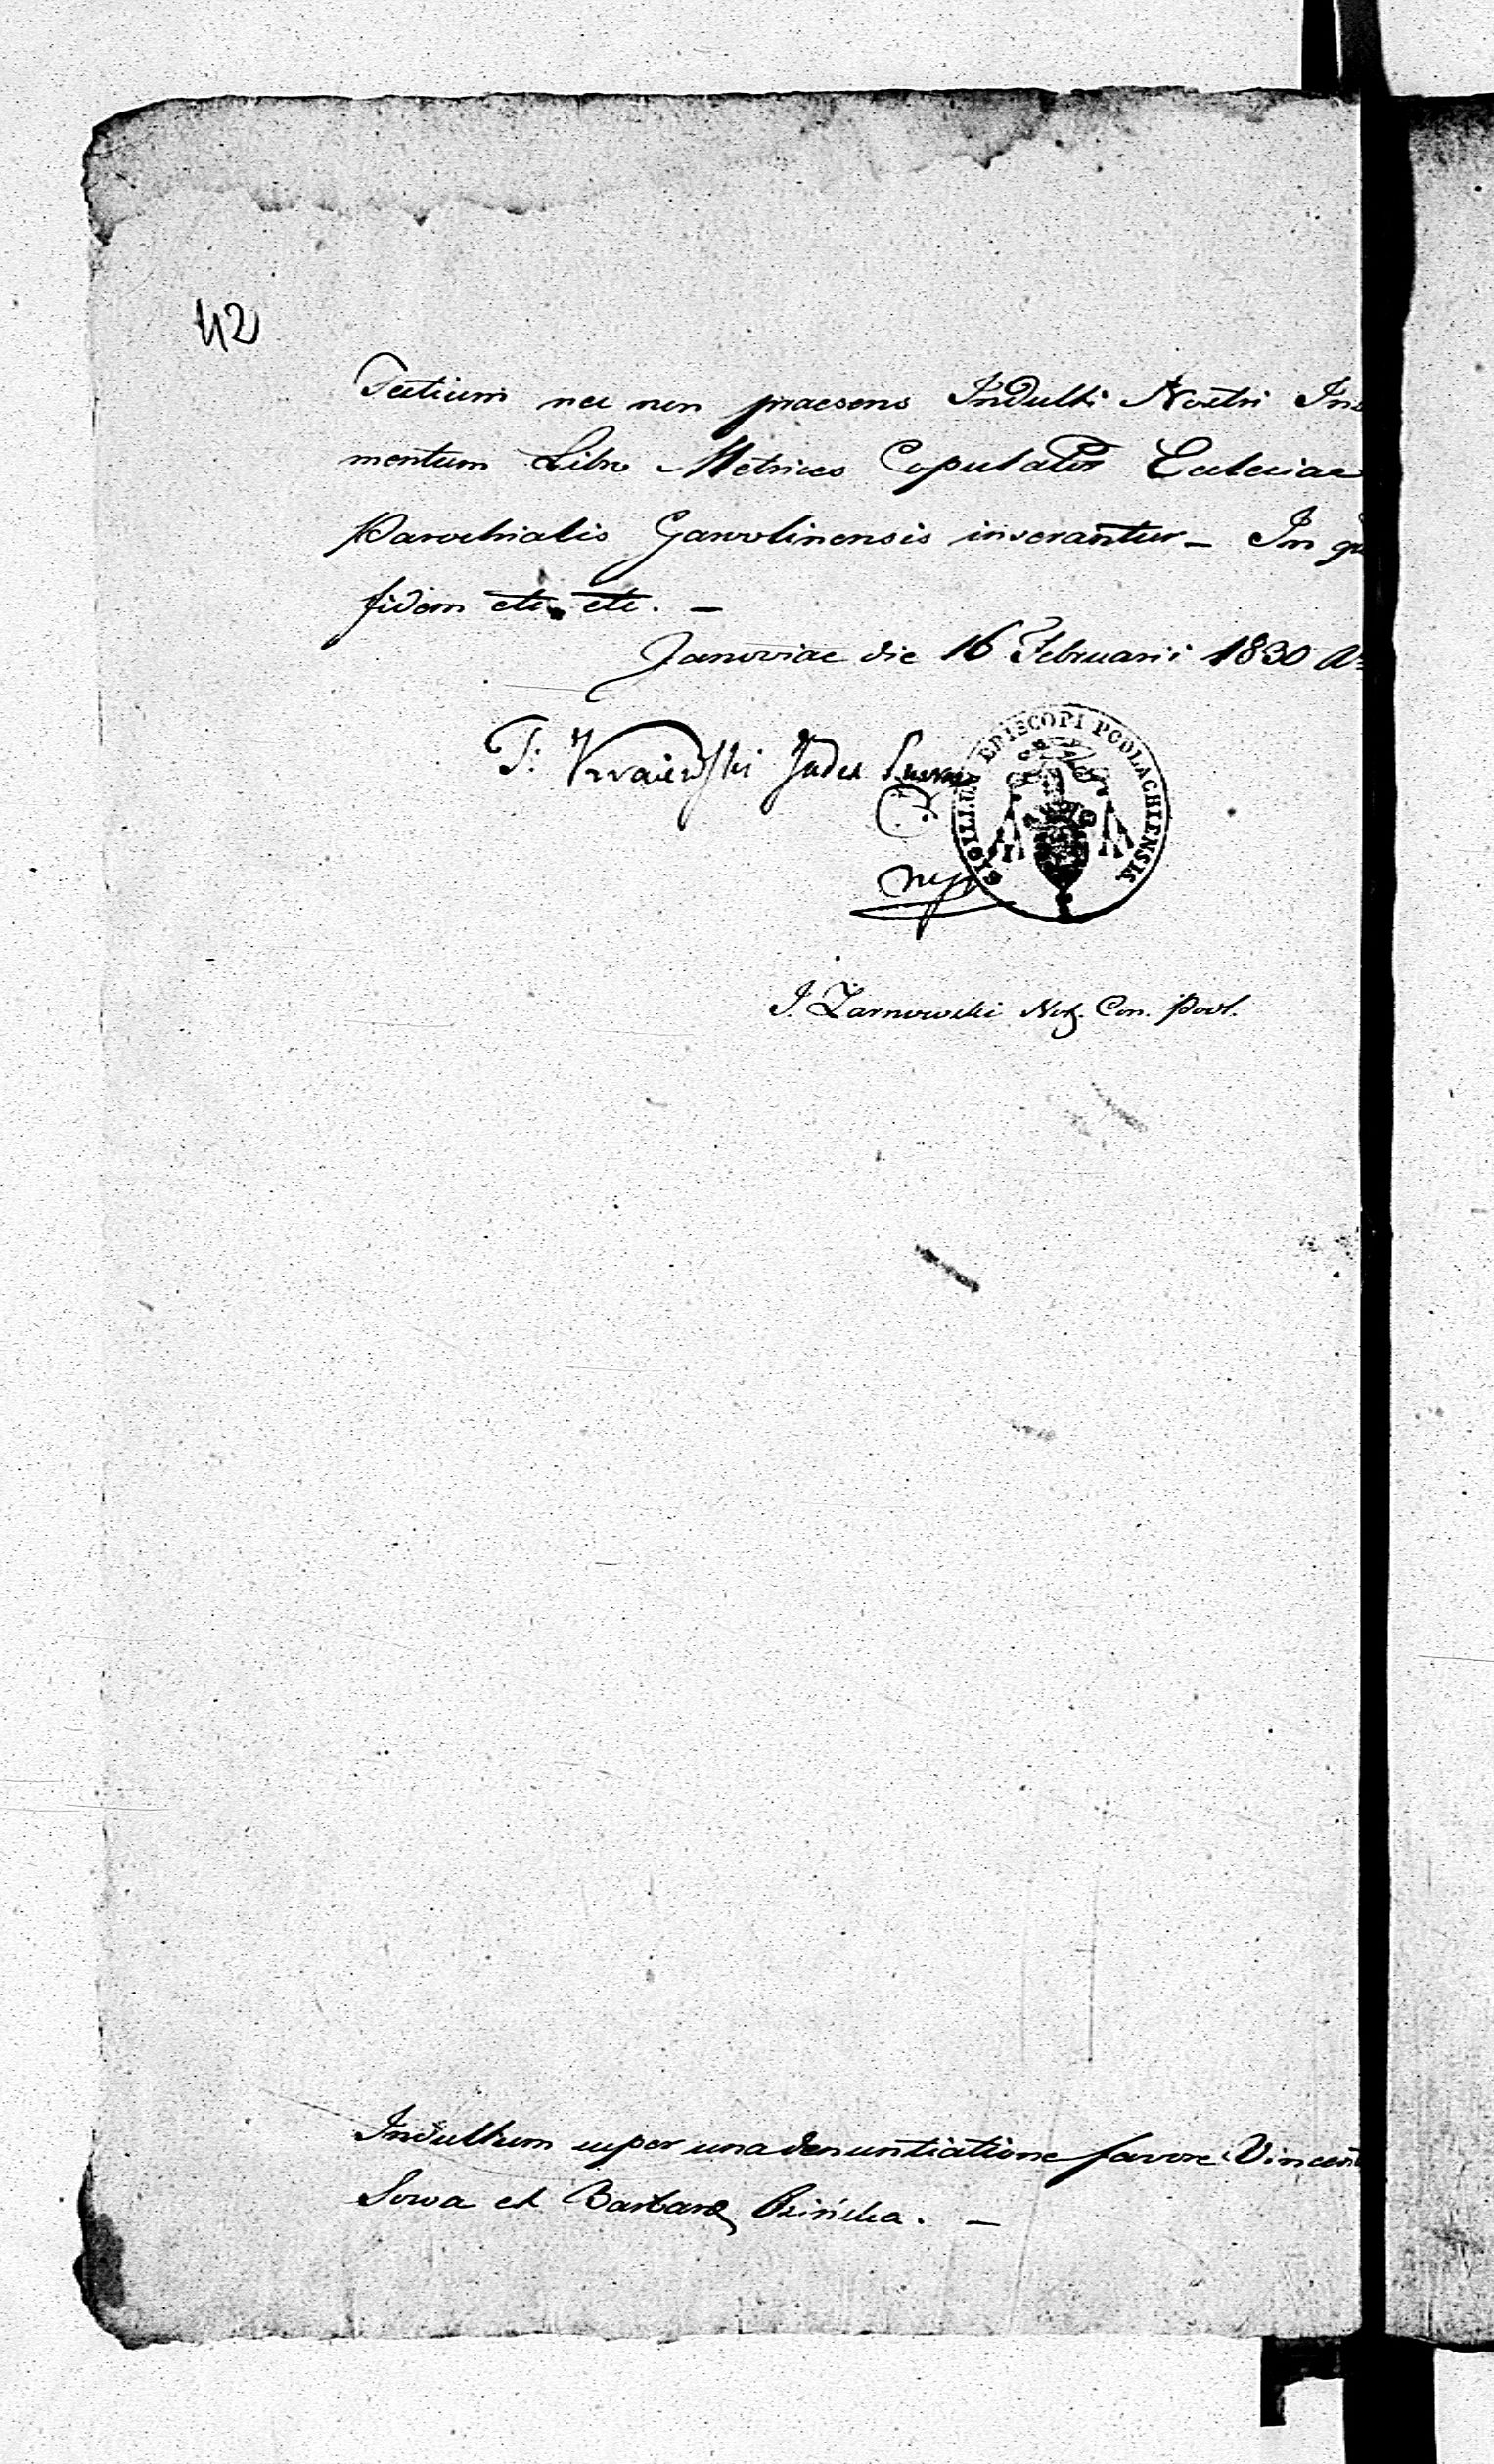 42
Testium nec non praesens Indulti Nostri Ins
mentum Libro Metrices Copulator Ecclesiae
Parochialis Garwolinensis inserantur _ In
fidem etc. etc. _
Janoviae die 16 Februarii 1830
Judex
SIGILLUM EPISCOPI PODLACHIENSIS
mp
J. Żarnowski Not. Con. Podl.
Indultum super una denuntiatione favore Vincent
Sowa et Barbara . _